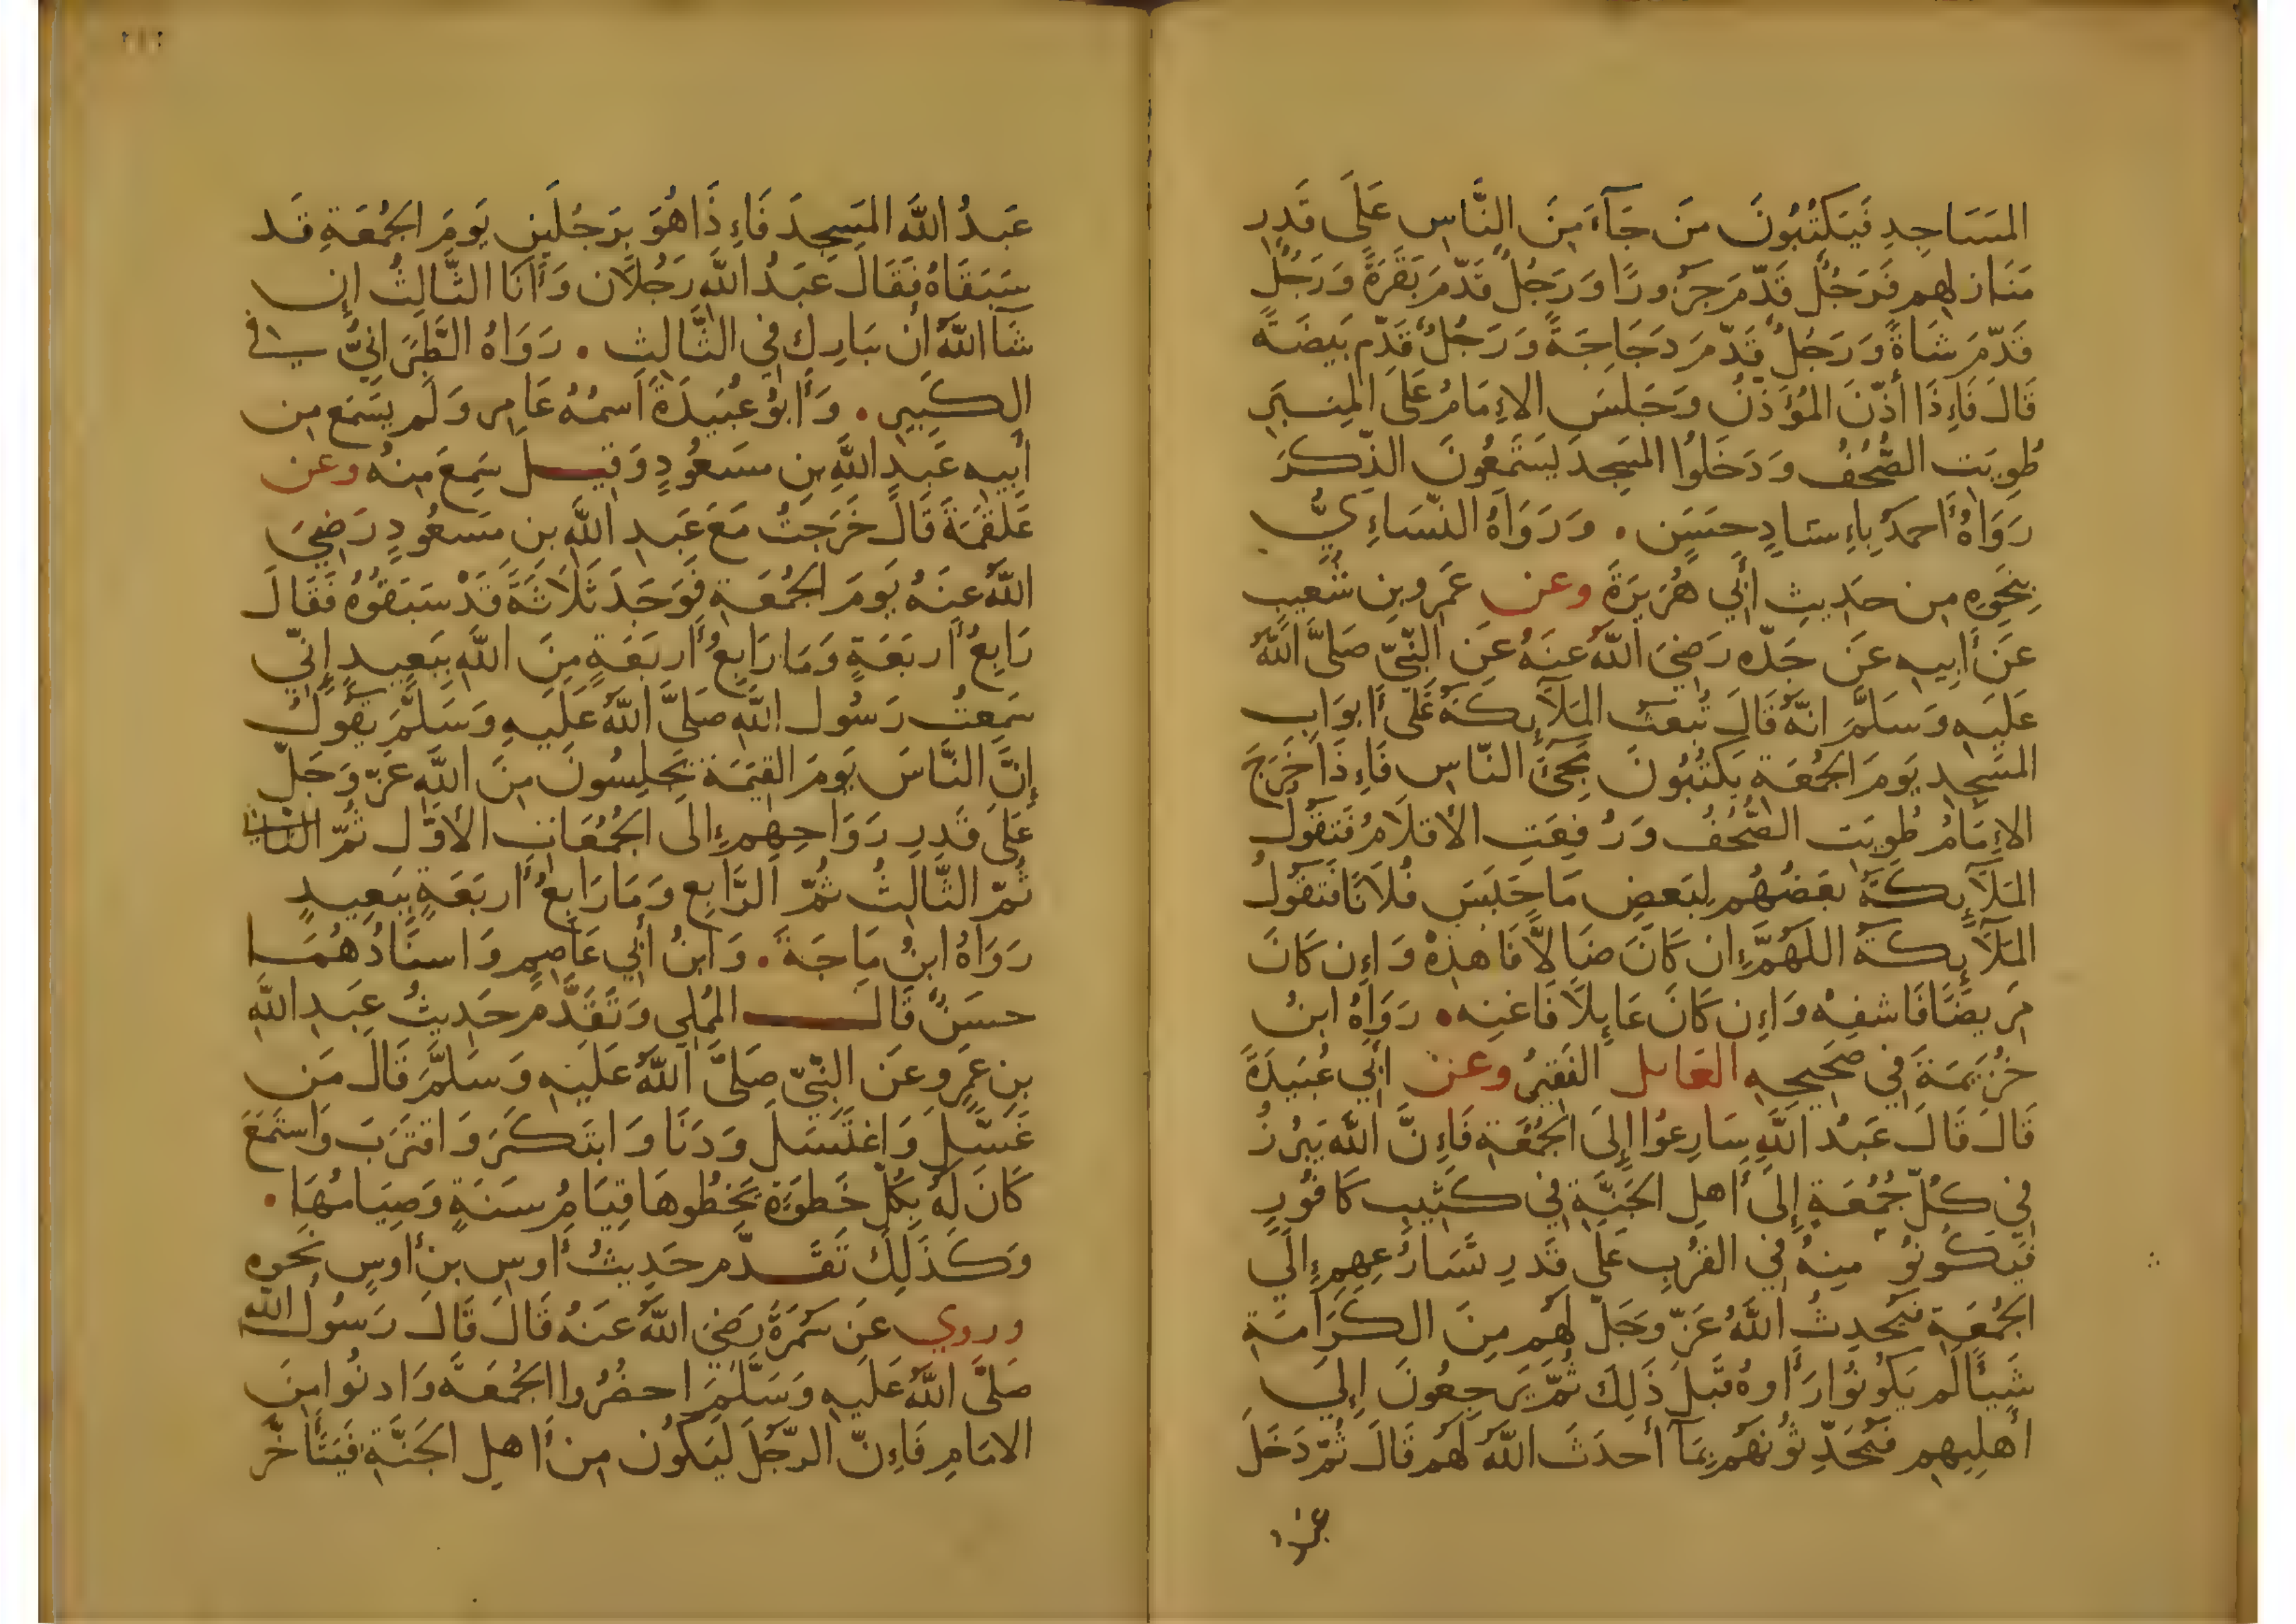 المَسَاجِدِ فَيَكْتُبُونَ مَن جَآءَ مِنَ النَّاسِ عَلَى قَدْرِ
مَنَازِلهِم فَرَجُلٌ قَدَّمَ جَزُورًا وَرَجُلٌ قَدَّمَ بَقَرَةً وَرَجُلٌ
قَدَّمَ شَاةً وَرَجُلٌ قَدَّمَ دَجَاجَةً وَرَجُلٌ قَدَّم بَيضَةً
قَالَ فَاِذَا أَذَّنَ المُؤَذِّنُ وَجَلَسَ الاِمَامُ عَلَى المِنبَرِ
طُوِيَت الصُّحُفُ وَدَخَلُوا المَسجِدَ يَستَمِعُونَ الذِّكرَ
رَوَاهُ أَحمَدُ بِاِسنَادٍ حَسَنٍ . وَرَوَاهُ النَّسَاءِيُّ
بِنَحوِهِ مِن حَدِيثِ أَبِي هُرَيرَةَ وعن عَمرِو بنِ شُعَيبٍ
عَن أَبِيهِ عَن جَدِّه رَضِيَ اللَّهُ عَنهُ عَنِ النَّبِيِّ صَلَّى اللَّهُ
عَلَيهِ وَسَلَّمَ انَّهُ قَالَ تُبعَثُ المَلَآئِكَةُ عَلَى أَبوَابِ
المَسجِدِ يَومَ الجُمُعَةِ يَكتُبُونَ مَجِيءَ النَّاسِ فَاِذَا خَرَجَ
الاِمَامُ طُوِيَت الصُّحُفُ وَرُفِعَتِ الأَقلَامُ فَتَقُولُ
المَلَآئِكَةُ بَعضُهُم لِبَعضٍ مَا حَبَسَ فُلَانًا فَتَقُولُ
المَلَآئِكَةُ اللَّهُمَّ إِن كَانَ ضَالًّا فَاهدِهْ وَاِن كَانَ
مَرِيضًا فَاشفِهْ وَاِن كَانَ عَائِلًا فَاغنِه . رَوَاهُ ابنُ
خُزَيمَةَ فِي صَحِيحِهِ العَائل الفَقِيرُ وعن أَبِي عُبَيدَةَ
قَالَ قَالَ عَبدُ اللَّهِ سَارِعُوا إِلَى الجُمُعَةِ فَاِنَّ اللَّهَ يَبرُزُ
فِي كُلِّ جُمُعَةٍ إِلَى أَهلِ الجَنَّةِ فِي كَثِيبِ كَافُورٍ
فَيَكُونُو مِنهُ فِي القُربِ عَلَى قَدرِ تَسَارُعِهِم اِلَى
الجُمُعَةِ فَيُحدِثُ اللَّهُ عَزَّ وَجَلَّ لَهُم مِنَ الكَرَامَةِ
شَيئًا لَم يَكُونُوا رَأَوهُ قَبلَ ذَلِكَ ثُمَّ يَرجِعُونَ اِلَى
أَهلِيهِم فَيُحَدِّثُونَهُم بِمَآ أَحدَثَ اللَّهُ لَهُم قَالَ ثُمَّ دَخَلَ
عَبدُ اللَّهِ المَسجِدَ فَاِذَا هُوَ بِرَجُلَينِ يَومَ الجُمُعَةِ قَد
سَبَقَاهُ فَقَالَ عَبدُ اللَّهِ رَجُلَانِ وَأَنَا الثَّالِثُ إِن
شَا اللَّهُ أَن يُبَارِك فِي الثَّالِثِ . رَوَاهُ الطَّبَرَانِيُّ في
الكَبِيرِ . وَأَبُو عُبَيدَةَ اسمُهُ عَامِر وَلَم يَسمَع مِن
أَبِيهِ عَبدِ اللَّهِ بنِ مَسعُودٍ وَقِيلَ سَمِعَ مِنهُ وعن
عَلقَمَةَ قَالَ خَرَجتُ مَعَ عَبدِ اللَّهِ بنِ مَسعُودٍ رَضِيَ
اللَّهُ عَنهُ يَومَ الجُمُعَةِ فَوَجَدَ ثَلَاثَةً قَدْ سَبَقُوهُ فَقَالَ
رَابِعُ أَربَعَةٍ وَمَا رَابِعُ أَربَعَةٍ مِنَ اللَّهِ بِبَعِيدٍ إِنِّي
سَمِعتُ رَسُولَ اللَّهِ صَلَّى اللَّهُ عَلَيهِ وَسَلَّمَ يَقُولُ
إِنَّ النَّاسَ يَومَ القِيَمَةِ يَجلِسُونَ مِنَ اللَّهِ عَزَّ وَجَلَّ
عَلَى قَدرِ رَوَاحِهِم اِلَى الجُمُعَاتِ الأَوَّل ثُمَّ الثَّانِي
ثُمَّ الثَّالِثُ ثُمَّ الرَّابِع وَمَا رَابِعُ أَربَعَةٍ بِبَعِيدٍ
رَوَاهُ ابنُ مَاجَةَ . وَابنُ أَبِي عَاصِمٍ وَاسنَادُهُمَا
حسَنٌ قَالَ المُملِي وَتَقَدَّم حَدِيثُ عَبدِ اللَّهِ
بنِ عَمرٍو عَن النَّبِيِّ صَلَّى اللَّهُ عَلَيهِ وَسَلَّمَ قَالَ مَن
غَسَّلَ وَاغتَسَلَ وَدَنَا وَابتَكَرَ وَاقتَرَبَ وَاستَمَعَ
كَانَ لَهُ بِكُلِّ خَطوَةٍ يَخطُوهَا قِيَامُ سَنَةٍ وَصِيَامُهَا .
وَكَذَلِكَ تَقَدَّم حَدِيثُ أَوسِ بنِ أَوسٍ نَحوه
وروي عَن سَمُرَةَ رَضِيَ اللَّهُ عَنهُ قَالَ قَالَ رَسُولُ اللَّه
صَلَّى اللَّهُ عَلَيهِ وَسَلَّمَ احضُرُوا الجُمُعَةَ وَادنُوا مِنَ
الامَامِ فَاِنَّ الرَّجُلَ لَيَكُونُ مِن أَهلِ الجَنَّةِ فَيَتَأَخَّر